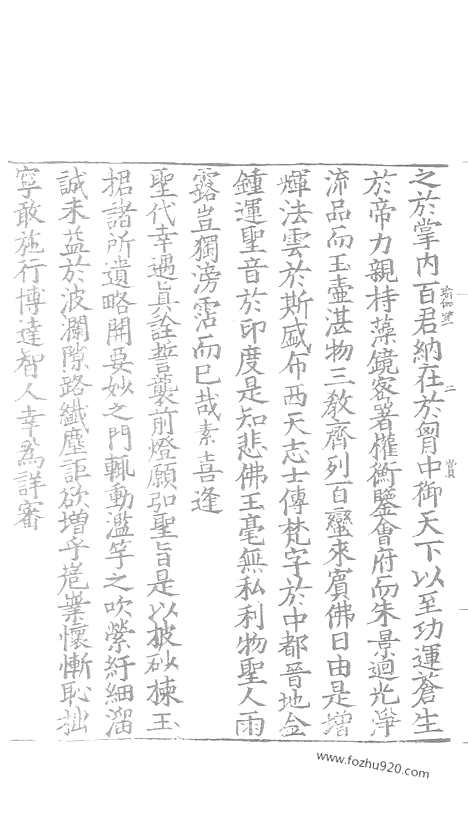 之於掌內百君納在於胷中御天下以至功運蒼生
於帝力親持藻鏡密署權衡鑒會府而朱景迴光淨
流品而玉壺湛物三教齊列百蠻來賓佛日由是增
輝法雲於斯盛布西天志士傳梵字於中都晉地仚
鍾運聖音於印度是知悲佛玉毫無私利物聖人雨
露豈獨滂霑而已哉素喜逢
聖代幸遇真詮誓襲前燈願弘聖旨是以披砂揀玉
捃諸所遺略開要妙之門輒動濫竽之吹縈紆細溜
誠未益於波瀾隙路纖塵詎欲增乎嵬嶪懷慚恥拙
寧敢施行博達智人幸為詳審
二
賞
www.fozhu920.com